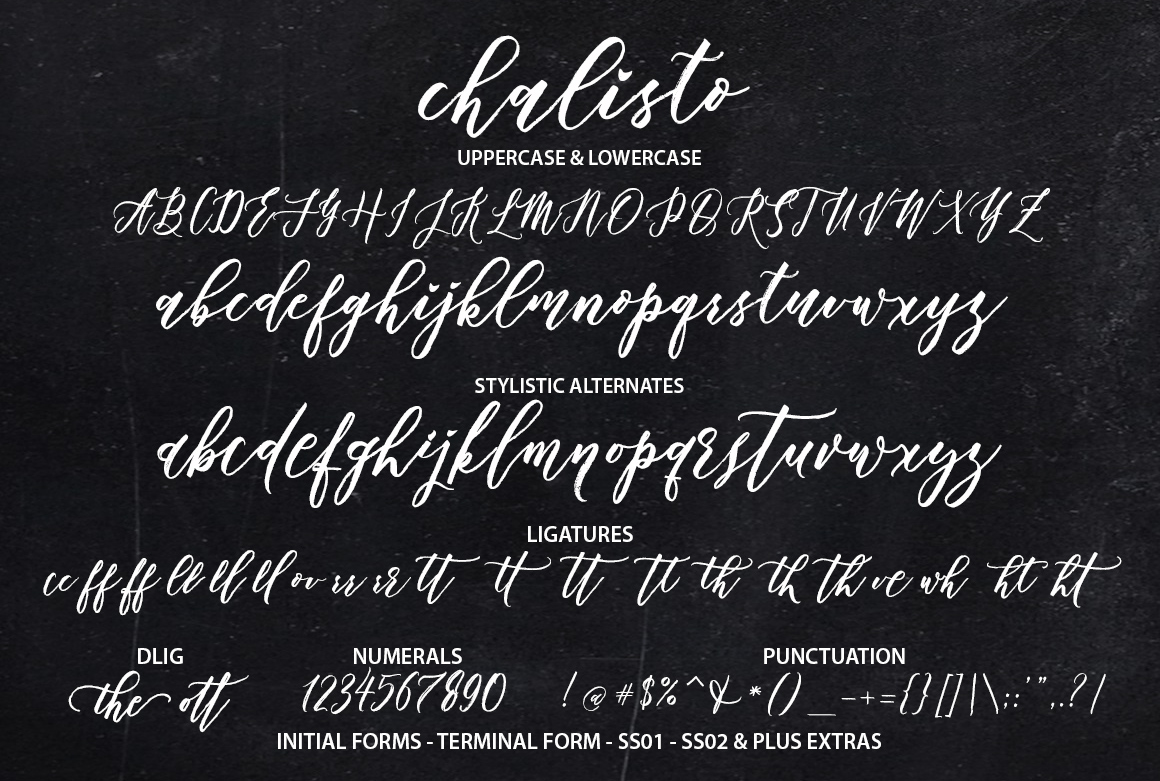 chalisto
UPPERCASE & LOWERCASE
ABCDEFGHIJKLMNOPQRSTUVWXYZ
abcdefghijklmnopqrstuvwxyz
STYLISTIC ALTERNATES
abcdefghijklmnopqrstuvwxyz
LIGATURES
cc ff ff ll ll ll ov rs rr tt tt tt tt th th th ve wh ht ht
DLIG NUMERALS PUNCTUATION
the ott 1234567890 ! @ # $ % ^ & * ( ) _ - + = { } [ ] | \ ; : ' " , . ? /
INITIAL FORMS - TERMINAL FORM - SS01 - SS02 & PLUS EXTRAS